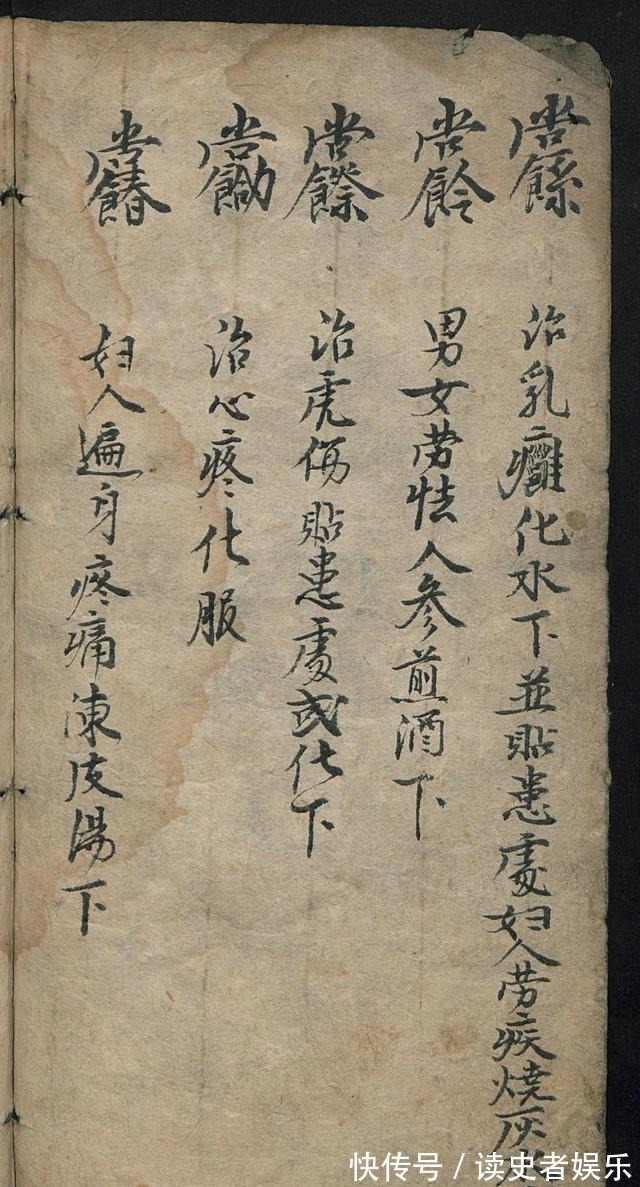 治乳癰化水下並貼患處妇人劳疾焼灰
男女劳怯人参煎酒下
治虎伤貼患處或化下
治心疼化服
妇人遍身疼痛陳皮湯下
快传号 / 读史者娱乐